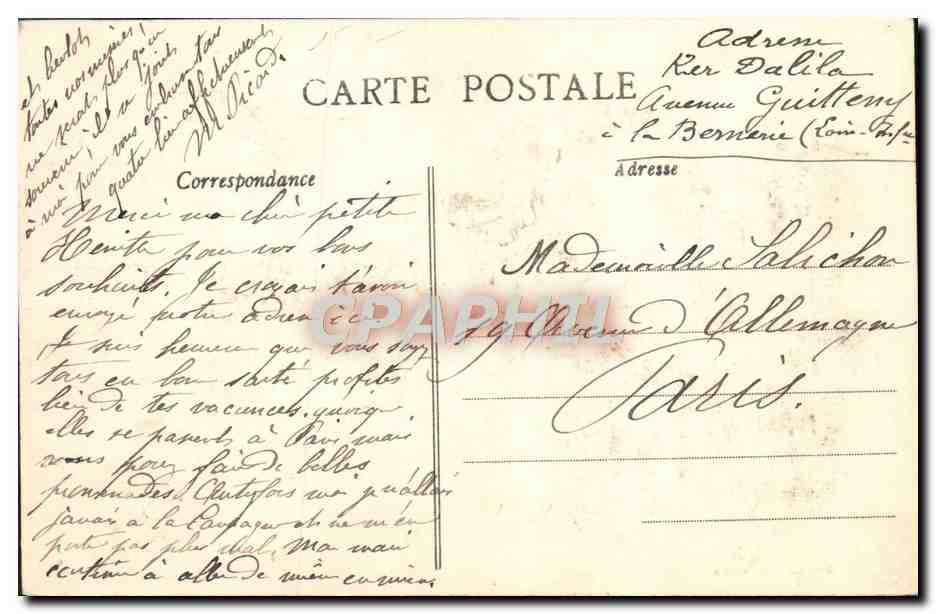 CARTE POSTALE
Correspondance
Merci ma chère petite
pour vos bons
souhaits. Je croyais t'avoir
envoyé notre adresse ici
Je suis heureux que vous soyez
tous en bon santé profites
bien de tes vacances. quoique
elles se passent à Paris mais
vous pouvez faire de belles
promenades. Autrefois moi j'n'allais
jamais à la Campagne et ne m'en
porte pas plus mal. Ma main
continue à aller de mieux en mieux
et bientôt
toutes nos misères
ne seront plus qu'un
souvenir, il se joint
à moi pour vous embrasser tous
quatre bien affectueusement
M Picard.
Adresse
Ker Dalila
Avenue Guitteny
à la Bernerie (Loire-Infre
Adresse
Mademoiselle Salichon
19 Avenue d'Allemagne
Paris.
CPAPHIL